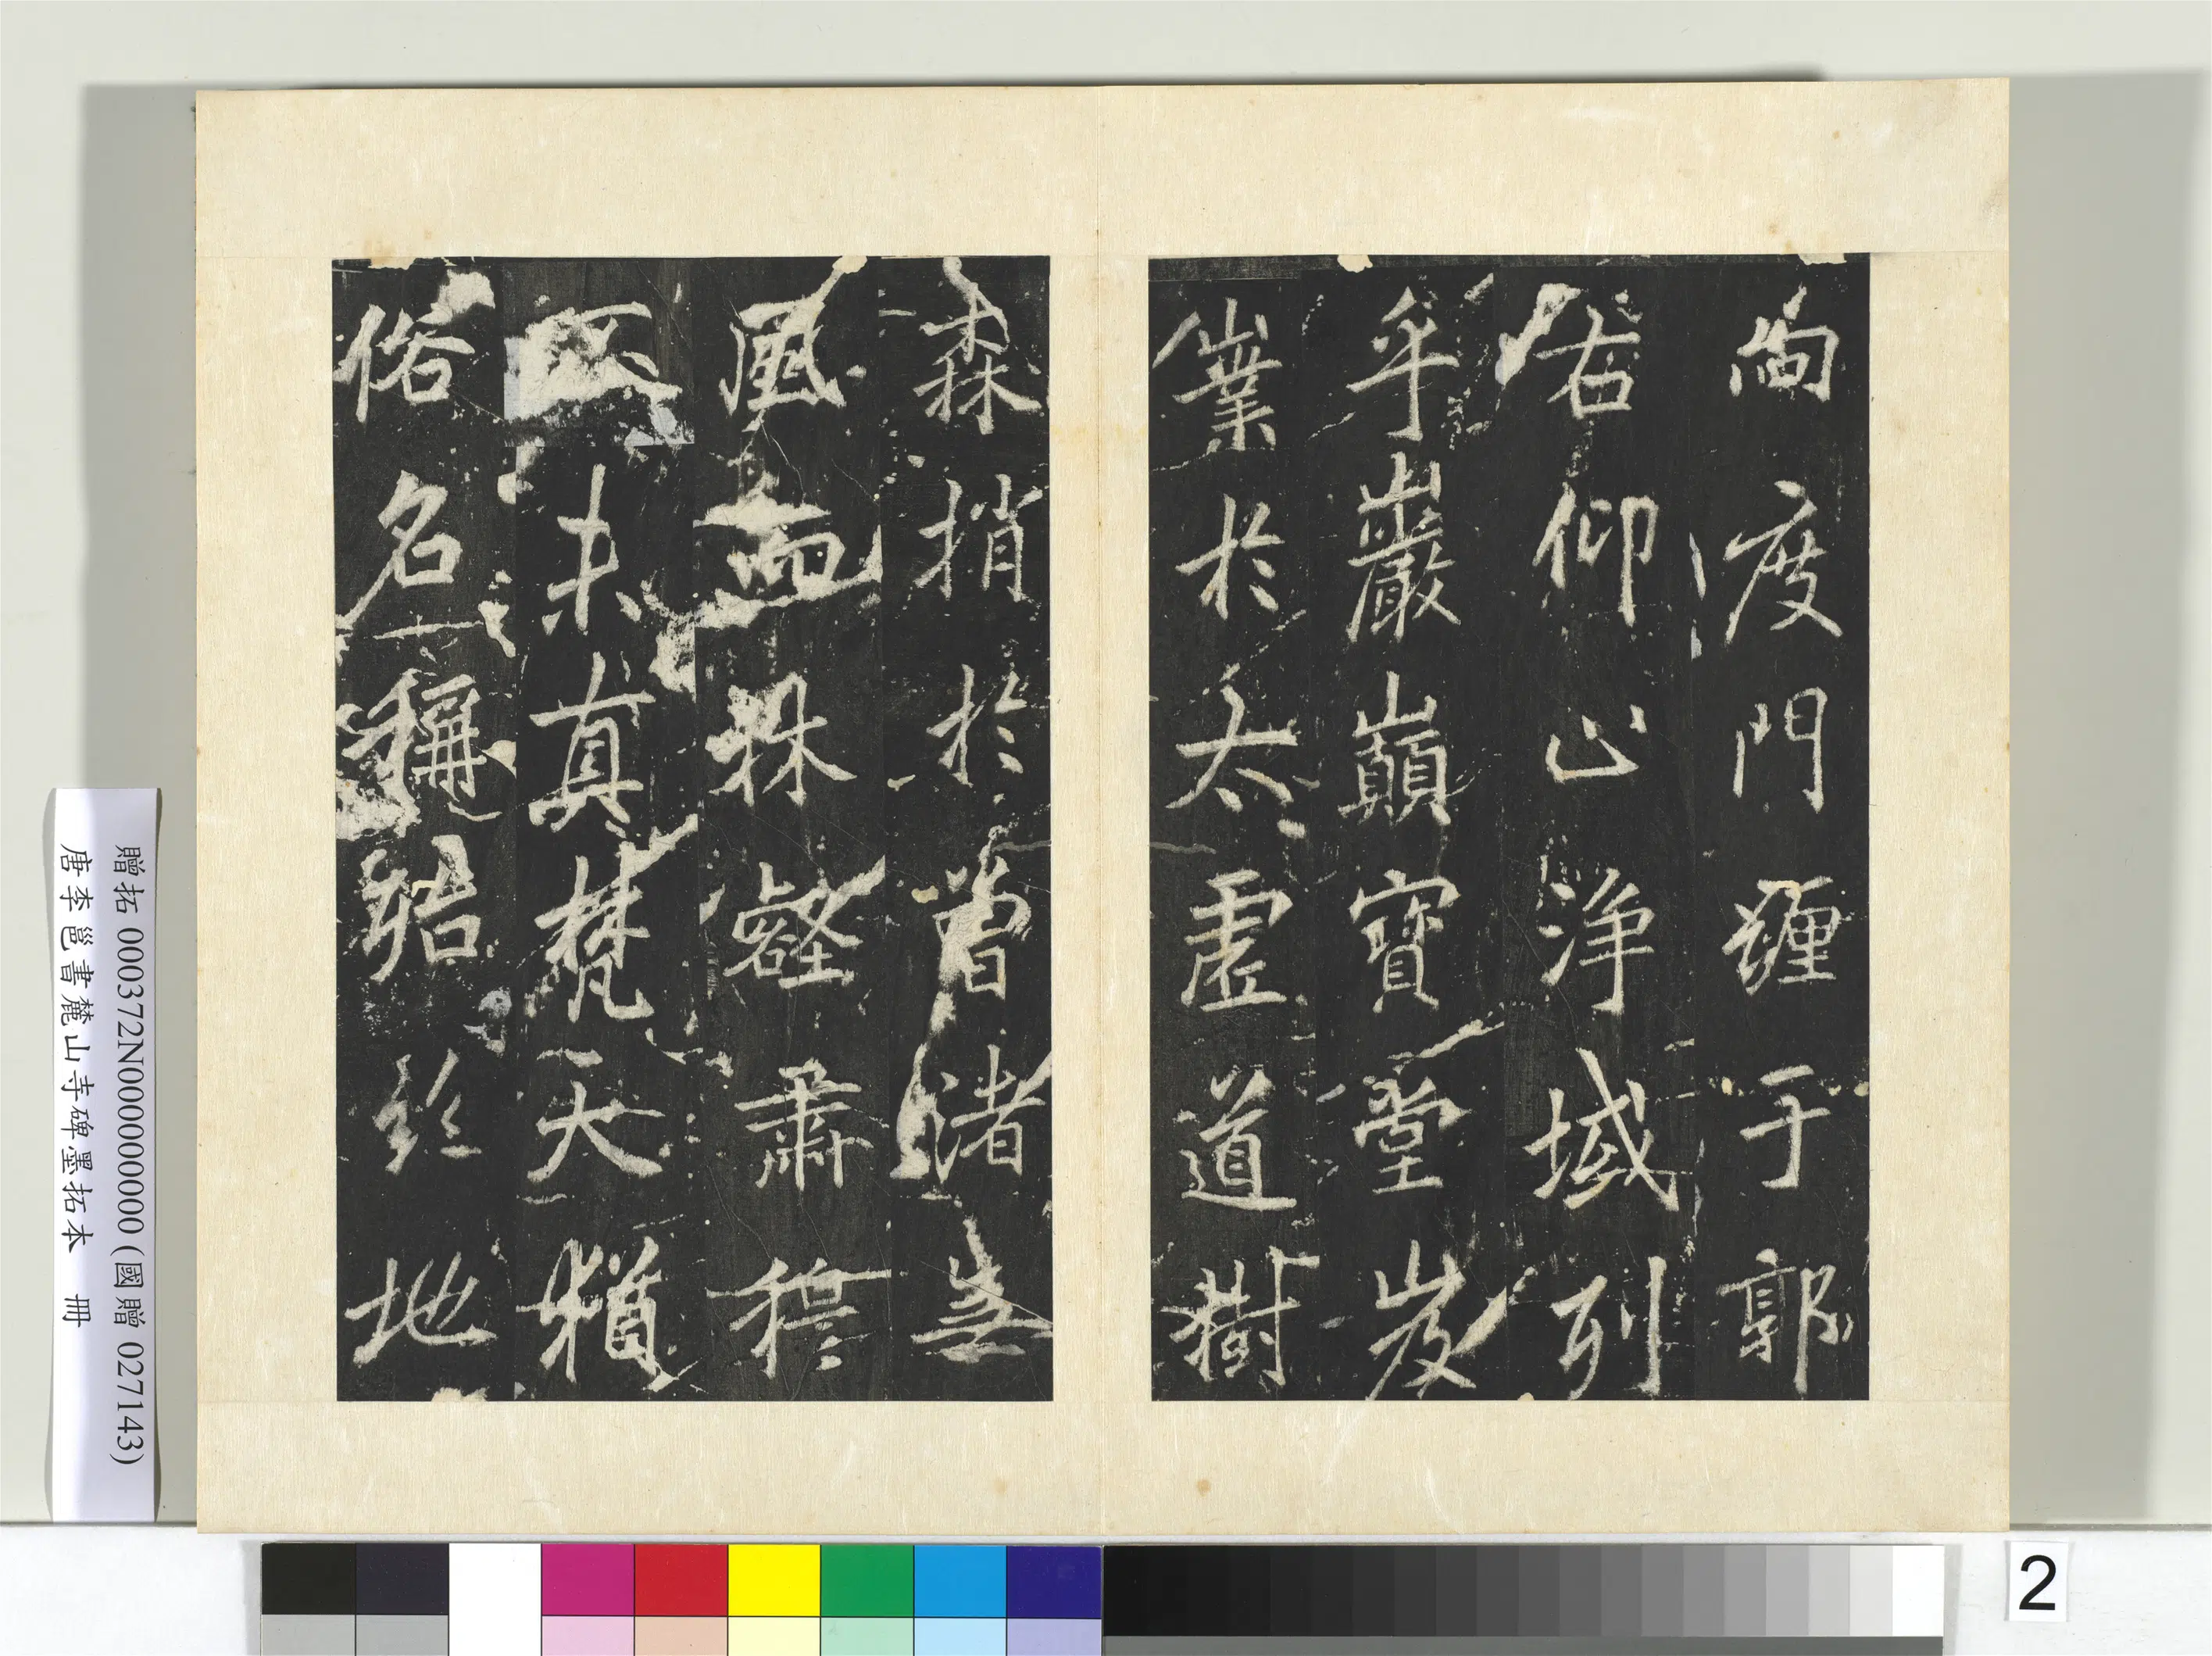 向度門纏于郭
右仰止淨域列
乎巖巔寶堂岌
嶪於太虛道樹
森捎於曾渚無
風而林壑肅穆
不未真梵天猶
俗名稱殆地
贈拓 000372N000000000 (國贈 027143)
唐李邕書麓山寺碑墨拓本 冊
2